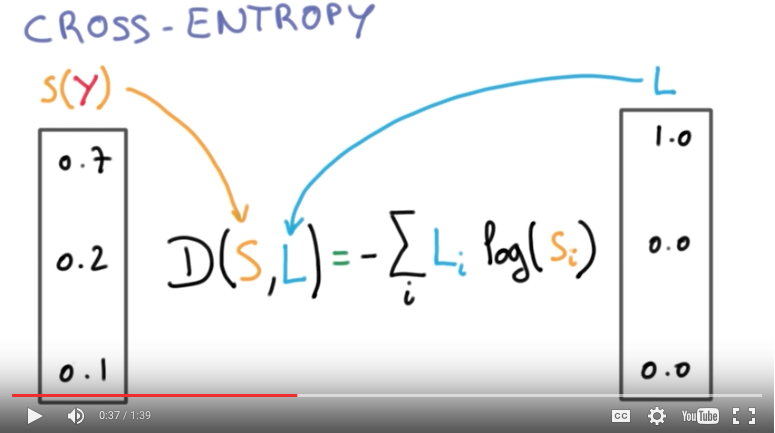 CROSS-ENTROPY
S(Y)
L
0.7
0.2
0.1
D(S,L) = -∑i Li log(Si)
1.0
0.0
0.0
0:37 / 1:39
CC
YouTube